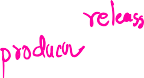 release
producer